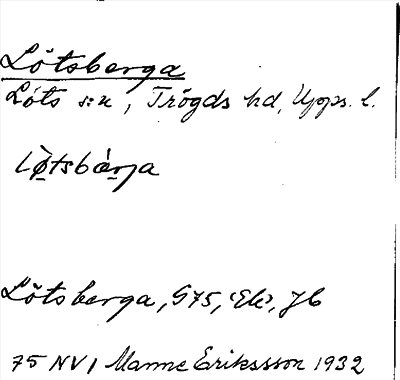 Lötsberga
Löts s:n, Trögds hd, Upps. l.
lø̀tsbæ̀rja
Lötsberga, G75, ‹Ek›, Jb
75 NV1 Manne Eriksson 1932